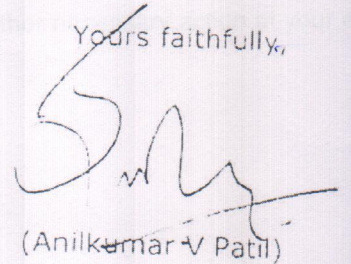 Yours faithfully,
(Anilkumar V Patil)